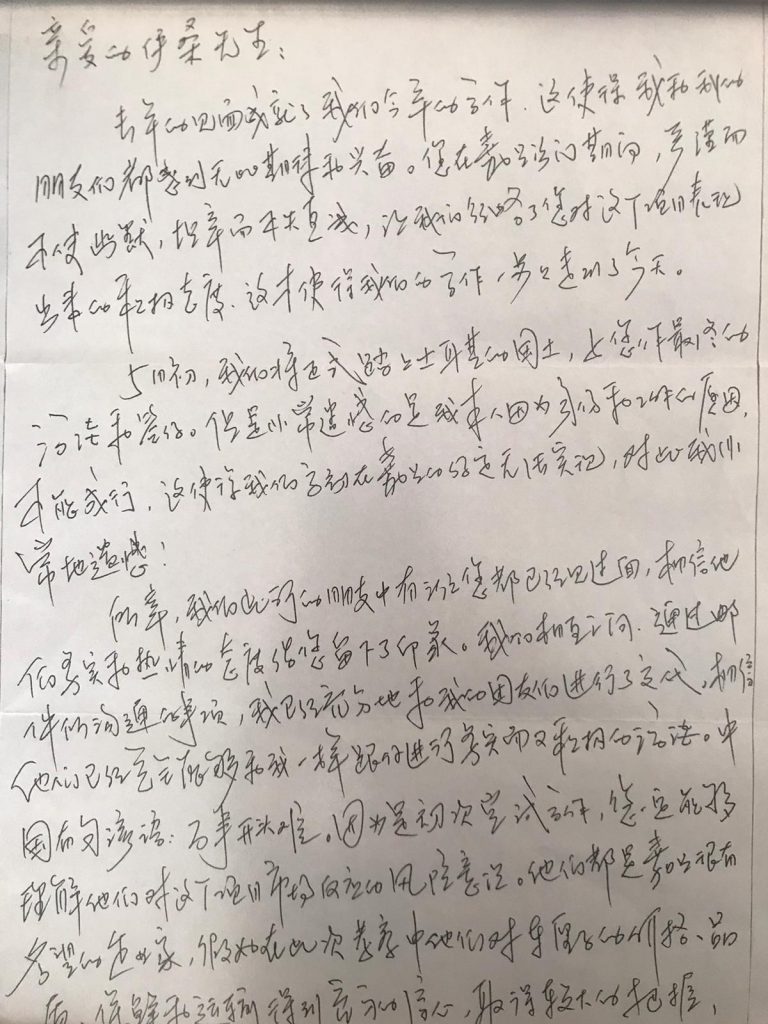 亲爱的伊桑先生：
去年的见面成就了我们今年的合作，这使得我和我的
朋友们都感到无比期待和兴奋。您在嘉兴访问期间，严谨而
不使 坦率而不失真诚，让我们领略了您对这个项目表现
出来的积极态度，这才使得我们的合作一步步走到了今天。
5月初，我们将正式踏上土耳其的国土，与您作最终的
访谈和签约。但是非常遗憾的是我本人因为身份和工作的原因，
不能成行，这使得我们当初在嘉兴的约定无法实现，对此我非
常地遗憾！
所幸，我们此行的朋友中有 您都已经见过面，相信他
们务实和热情的态度给您留下了印象。我们相互之间，通过邮
件所沟通的事项，我已经充分地和我的朋友们进行了交代，相信
他们已经完全能够和我一样跟你进行务实而又积极的访谈。中
国有句谚语：万事开头难。因为是初次尝试合作，您一定能够
理解他们对这个项目市场反应的风险意识。他们都是嘉兴很有
名望的企业家，假如在此次考察中他们对 的价格、品
质、保 和 得到 的信心，取得较大的把握，